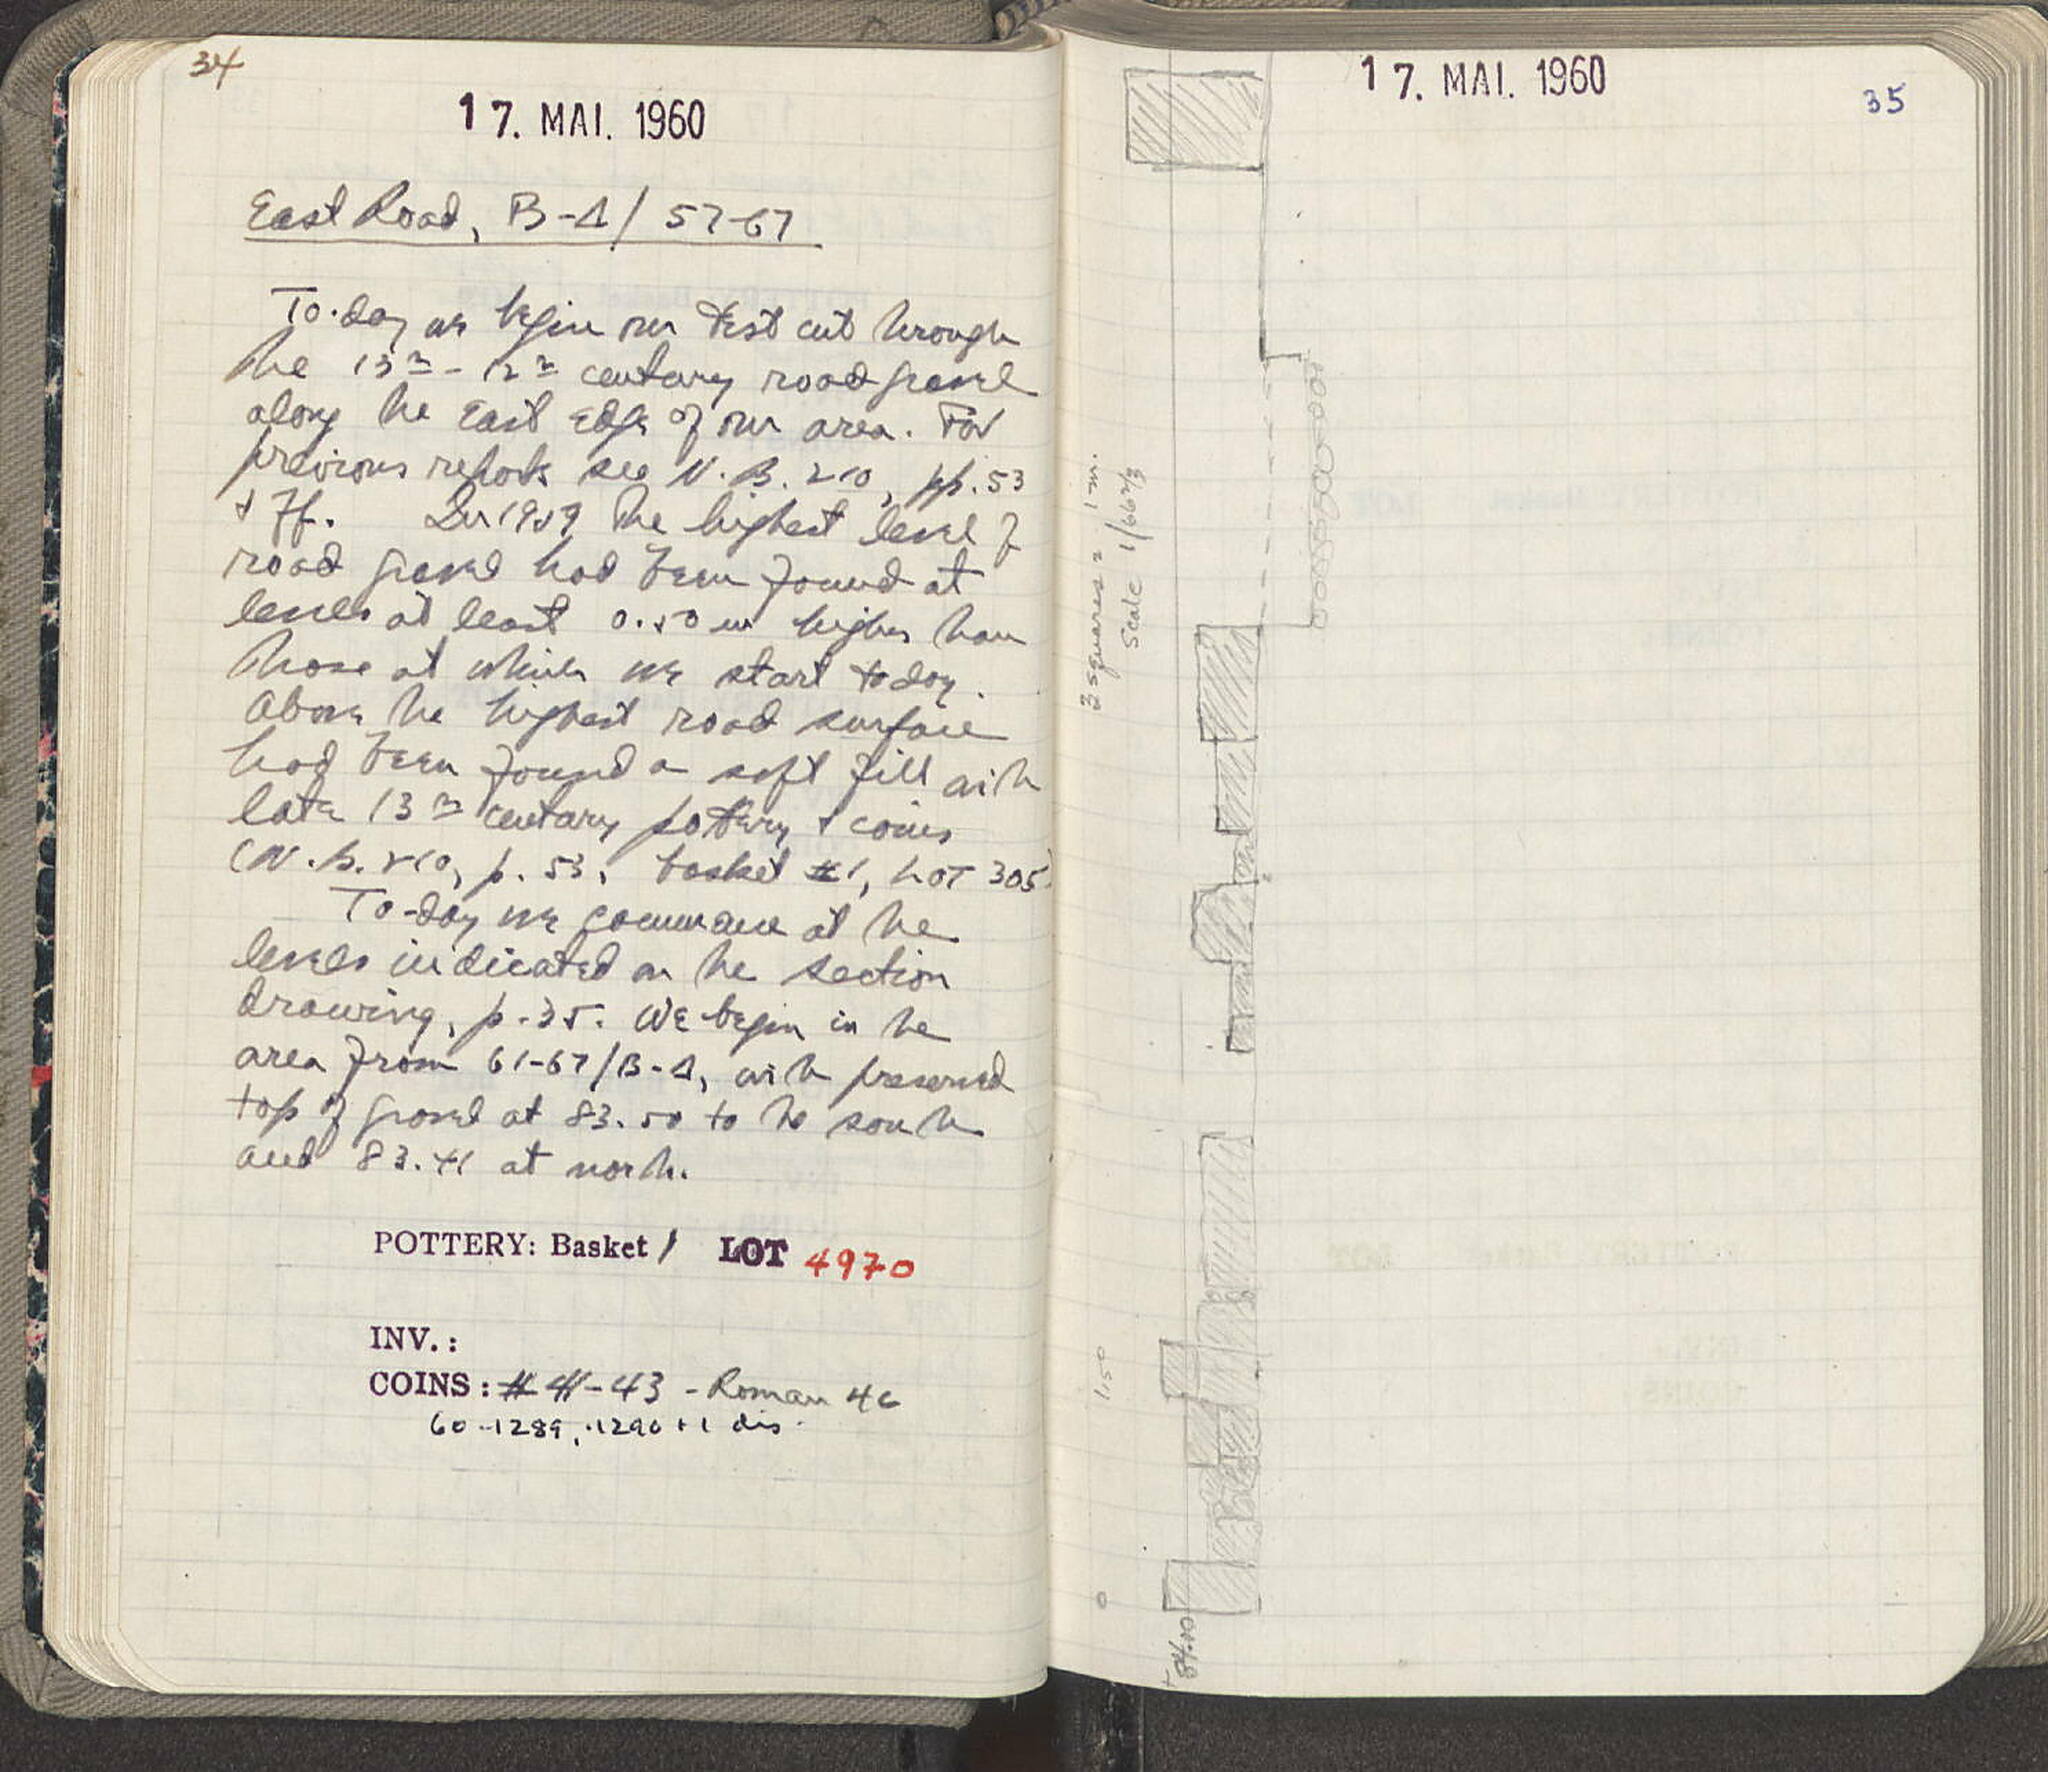 34
17. MAI. 1960
East Road, B-Δ / 57-67
To-day we begin our test cut through
the 13th - 12th century road gravel
along the East edge of our area. For
previous reports see N.B. 210, pp. 53
+ ff. In 1959 the highest level of
road gravel had been found at
levels at least 0.50 m higher than
those at which we start today.
Above the highest road surface
had been found a soft fill with
late 13th century pottery + coins
(N.B. 210, p. 53, basket #1, LOT 305)
To-day we commence at the
levels indicated on the section
drawing, p. 35. We begin in the
area from 61-67/B-Δ, with preserved
top of gravel at 83.50 to the south
and 83.41 at north.
POTTERY: Basket 1 LOT 4970
INV.:
COINS: # 41-43 - Roman 4c
60-1289, -1290 + 1 dis.
17. MAI. 1960
35
3 squares = 1 m.
Scale 1/66 2/3
1.50
0
+ 84.10